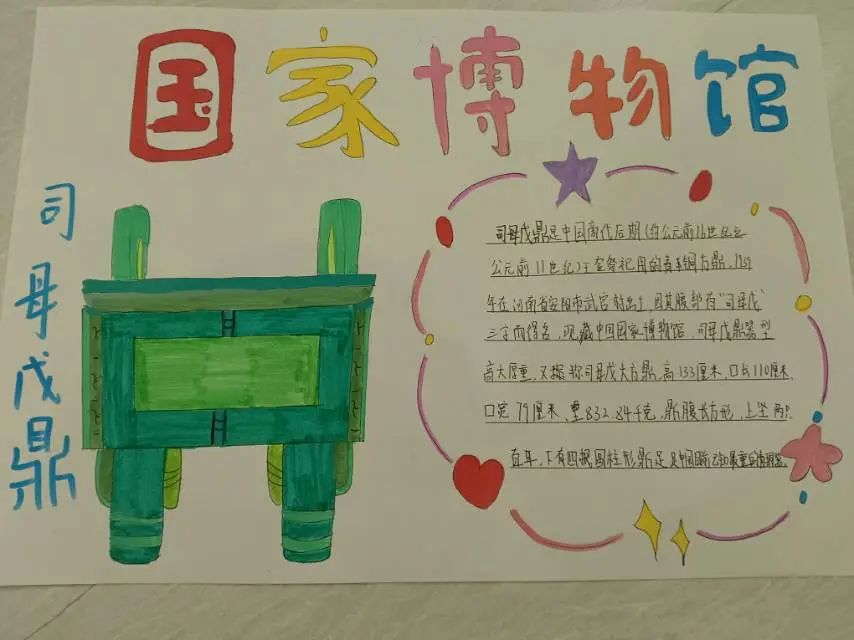 国家博物馆
司母戊鼎
司母戊鼎是中国商代后期(约公元前16世纪至
公元前11世纪)王室祭祀用的青铜方鼎，1939
年在河南省安阳市武官村出土，因其腹部有“司母戊”
三字而得名，现藏中国国家博物馆。司母戊鼎器型
高大厚重，又称司母戊大方鼎，高133厘米、口长110厘米、
口宽79厘米、重832.84千克，鼎腹长方形，上竖两只
直耳，下有四根圆柱形鼎足，是中国目前已知最重的青铜器。